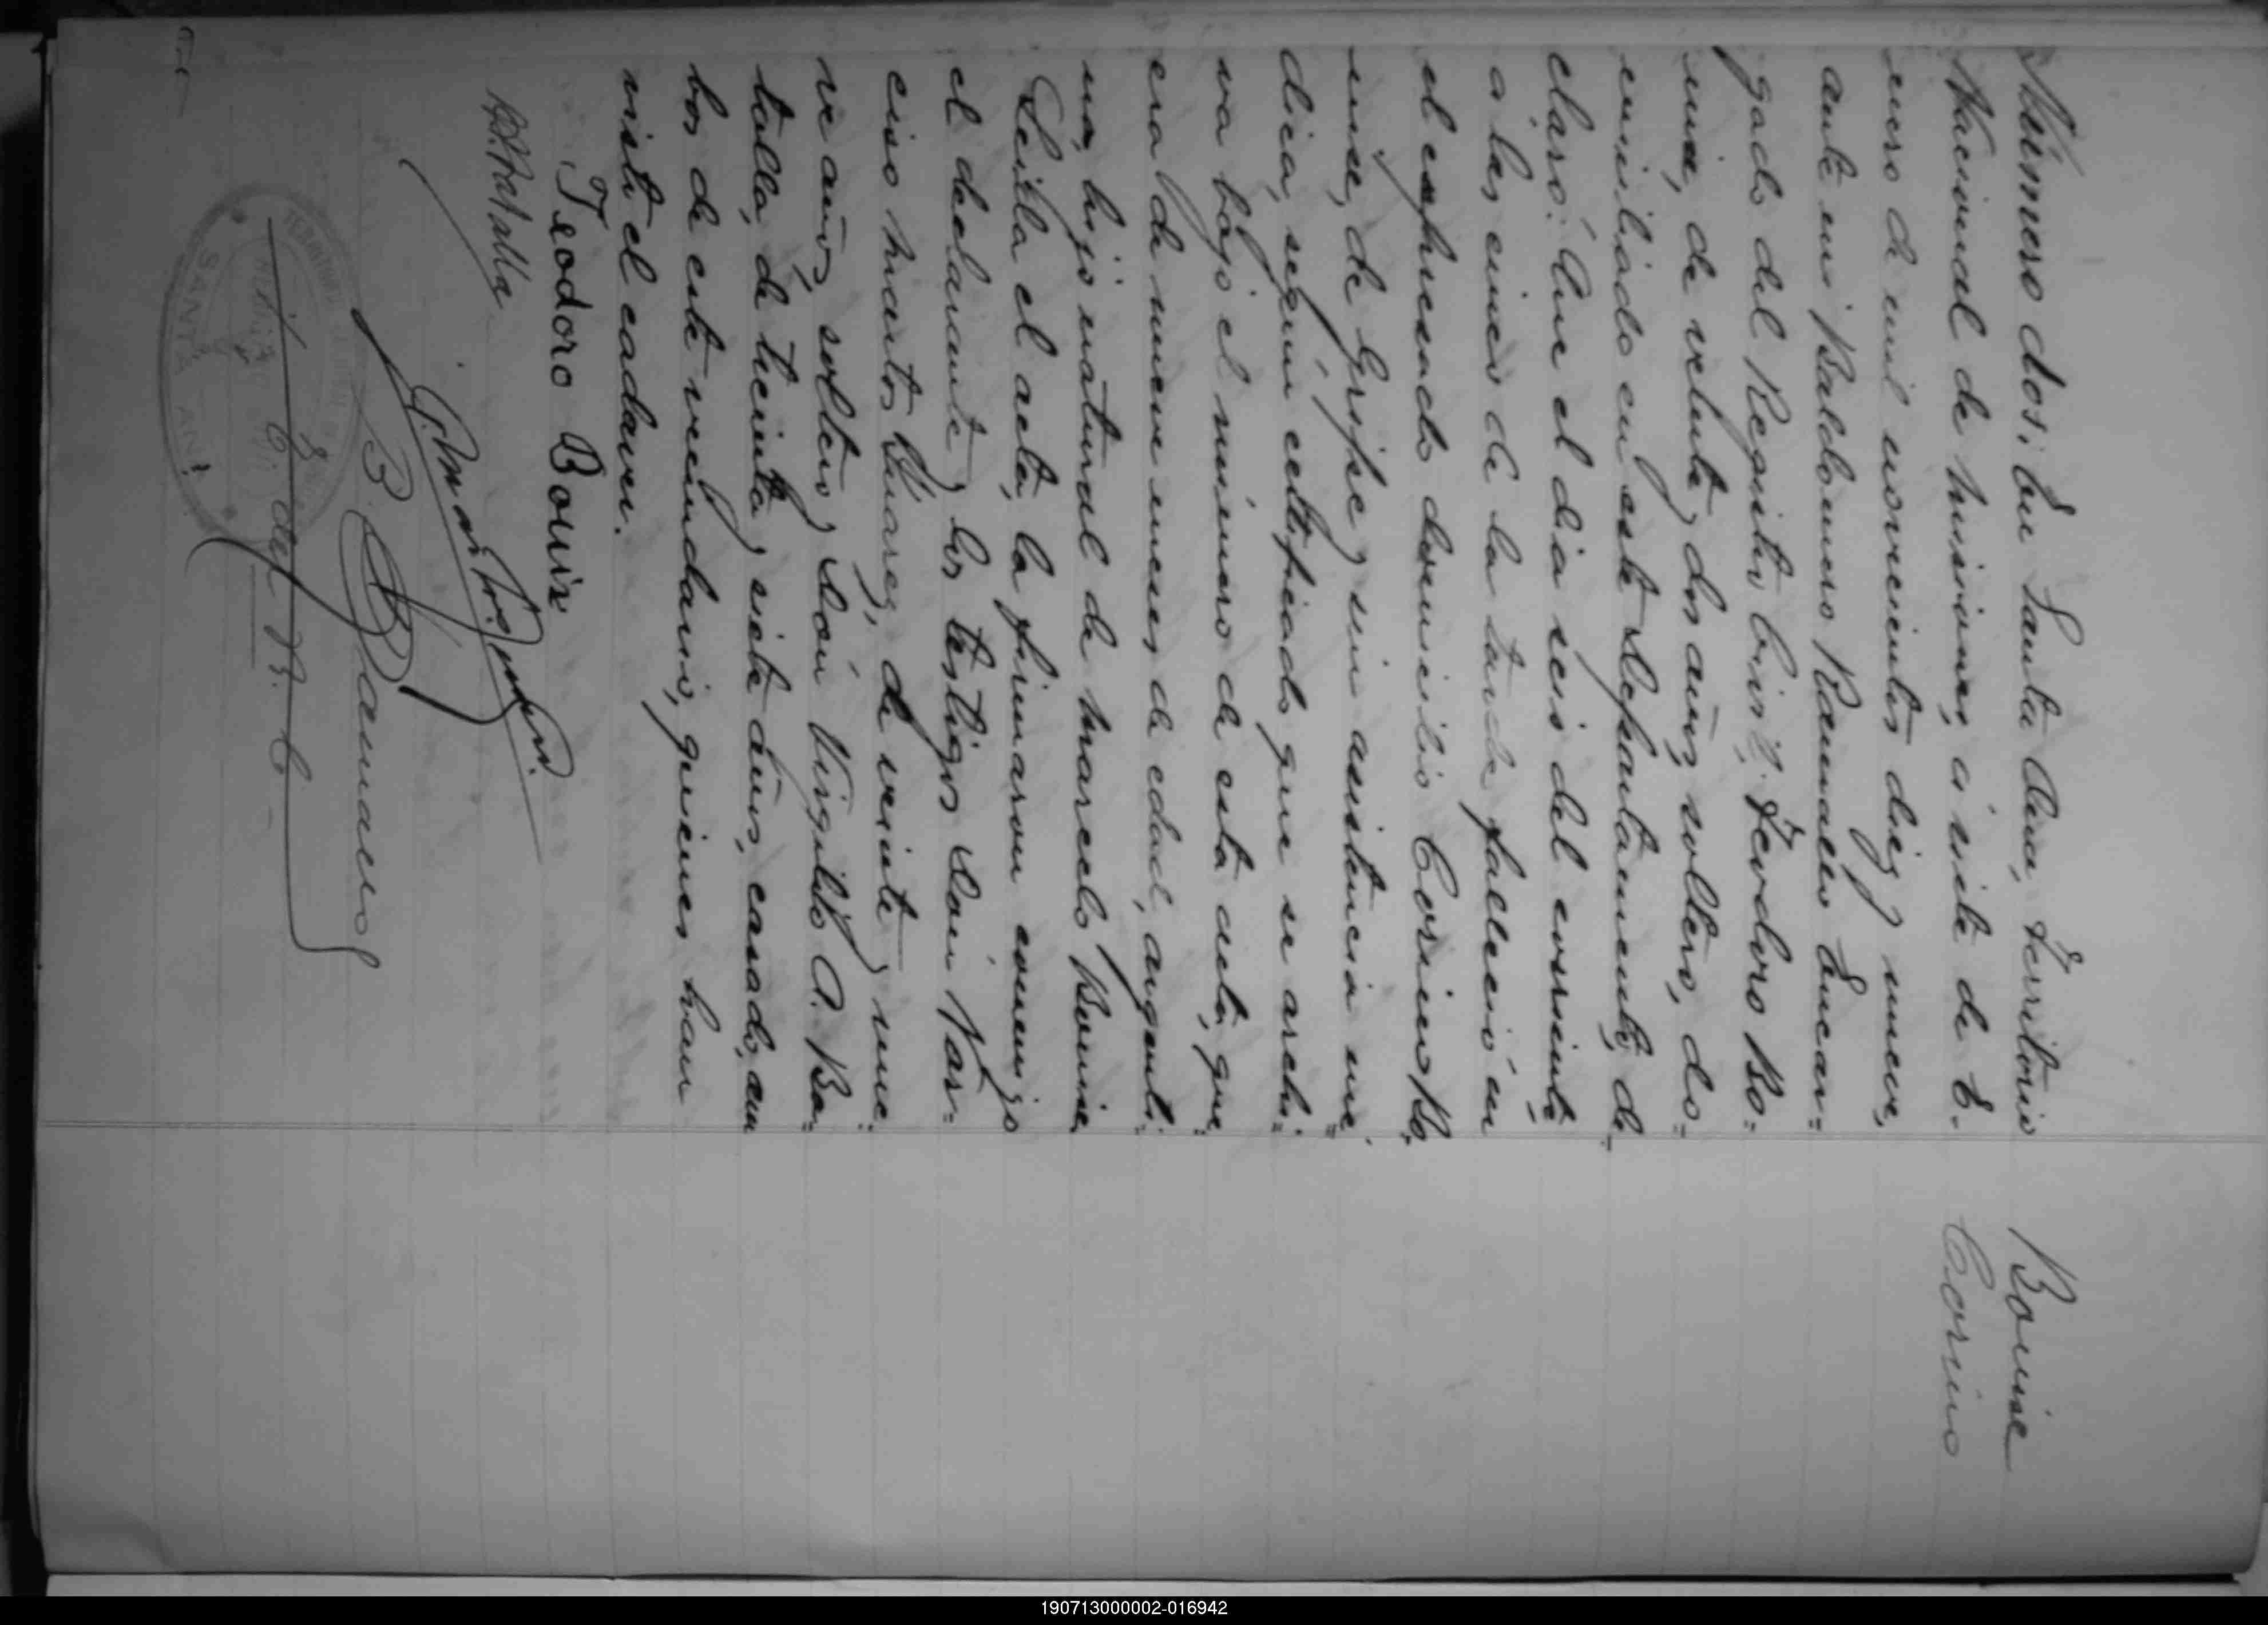 Bouise
Corino
Número dos: En Santa Ana, Territorio
Nacional de Misiones, a siete de E-
nero de mil novecientos diez y nueve,
ante mi Baldomero Ramallo Encar=
gado del Registro Civil; Teodoro Bo=
uise, de veinte y dos años, soltero, do=
miciliado en este Departamento, de-
claró: Que el dia seis del corriente
a las cinco de la tarde falleció en
el expresado domicilio Corino Bo,
uise, de Gripe y sin asistencia mé=
dica, según certificado que se archi=
va bajo el número de esta acta, que
era de nueve meses de edad, argenti=
no, hijo natural de Marcelo Bouise.
Leida el acta, la firmaron conmigo
el declarante y los testigos Don Nar=
ciso Suarez, de veinte y nue=
ve años, soltero y Don Virgilio A. Ba=
talla, de treinta y siete años, casado, am
bos de este vecindario, quienes han
visto el cadaver.
Teodoro Bouis
Batalla
SANTA ANA